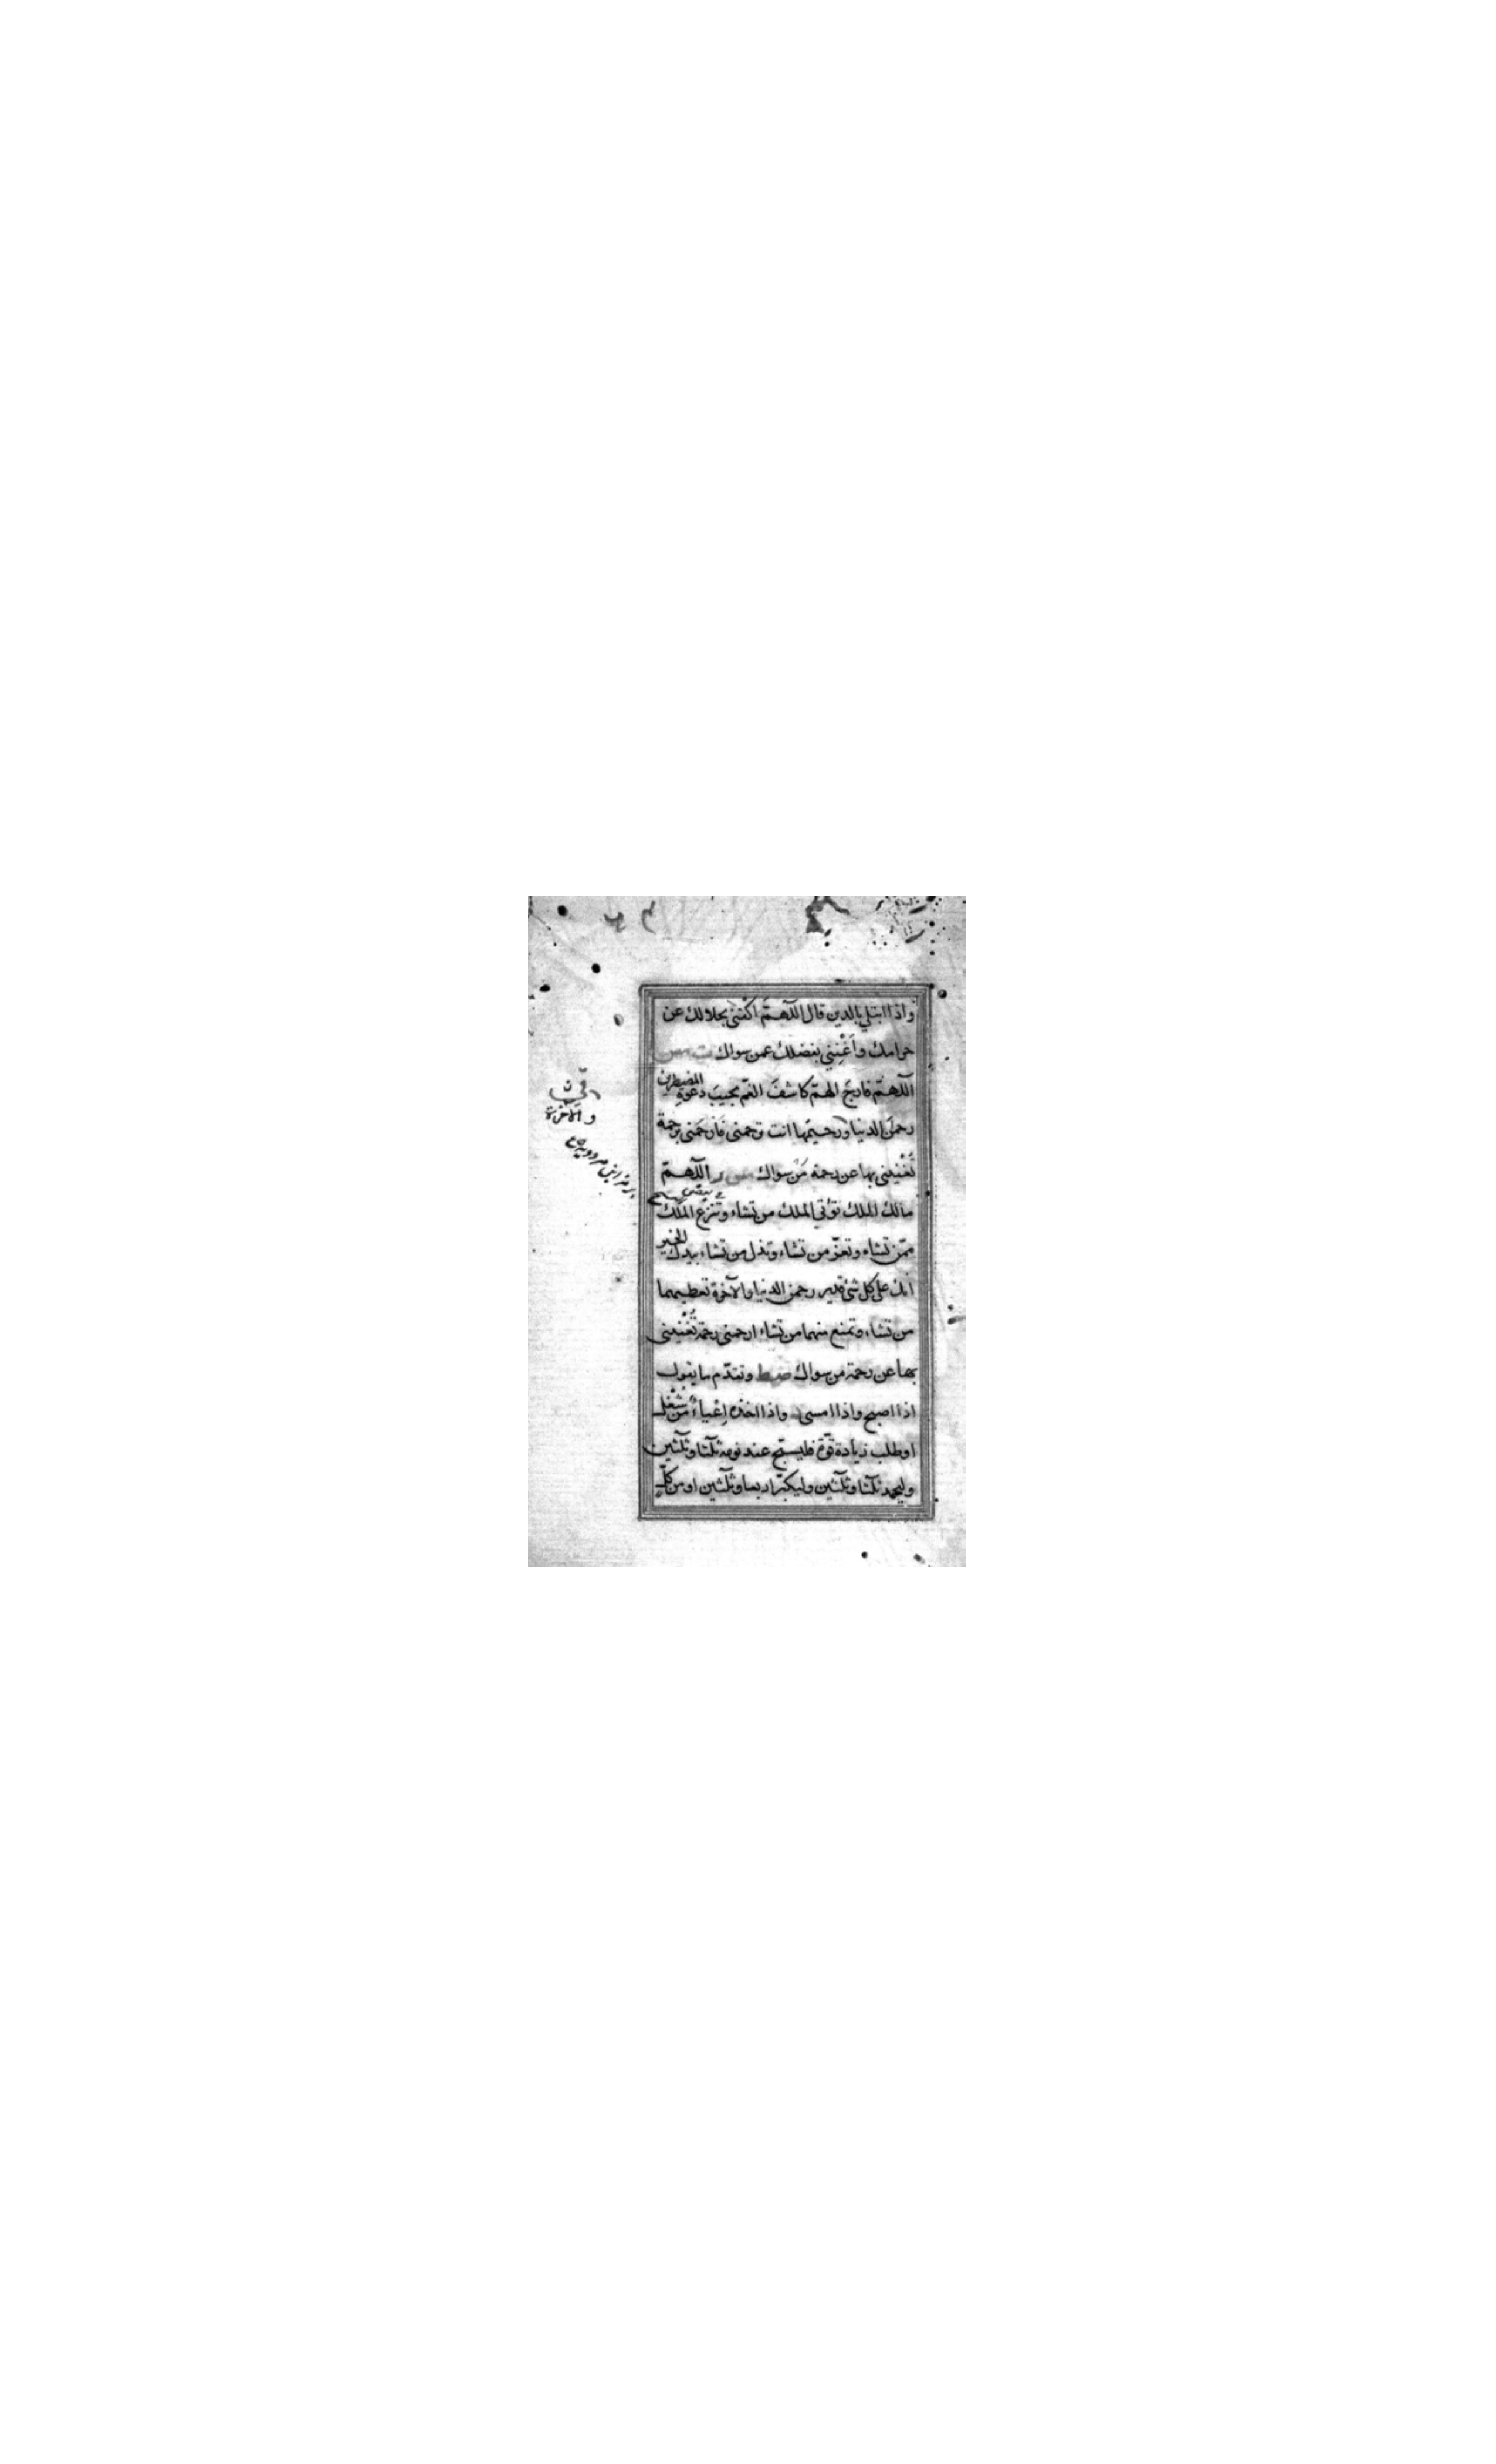 واذا ابتلي بالدين قال اللّهمّ اكفنى بحلالك عن
حرامك وأغْنِني بفضلك عمن سواك ت مس
اللّهمّ فارجَ الهمّ كاشفَ الغمّ مجيبَ دعوةِ المضطرين
رحمنَ الدنيا ورحيمَها انت ترحمنى فارحَمْنى برحمة
تُغْنِيْنى بها عن رحمة مَنْ سواك مس ر اللّهمّ
مالك الملك تؤتي الملك من تشاء وتنزع الملك
ممّن تشاء وتعزّ من تشاء وتذل من تشاء بيدك الخير
انك على كل شئ قدير رحمن الدنيا والآخرة تعطيهما
من تشاء وتمنع منهما من تشاء ارحمنى رحمة تُغْنِيْنى
بها عن رحمة من سواك صط وتقدّم ما يقول
اذا اصبح واذا امسى د واذا اخذه اِعْياءٌ من شُغْل
او طلب زيادة قوّة فليسبّح عند نومه ثلثا وثلثين
وليحمد ثلثا وثلثين وليكبّر اربعا وثلثين او من كلّ
والآخرة